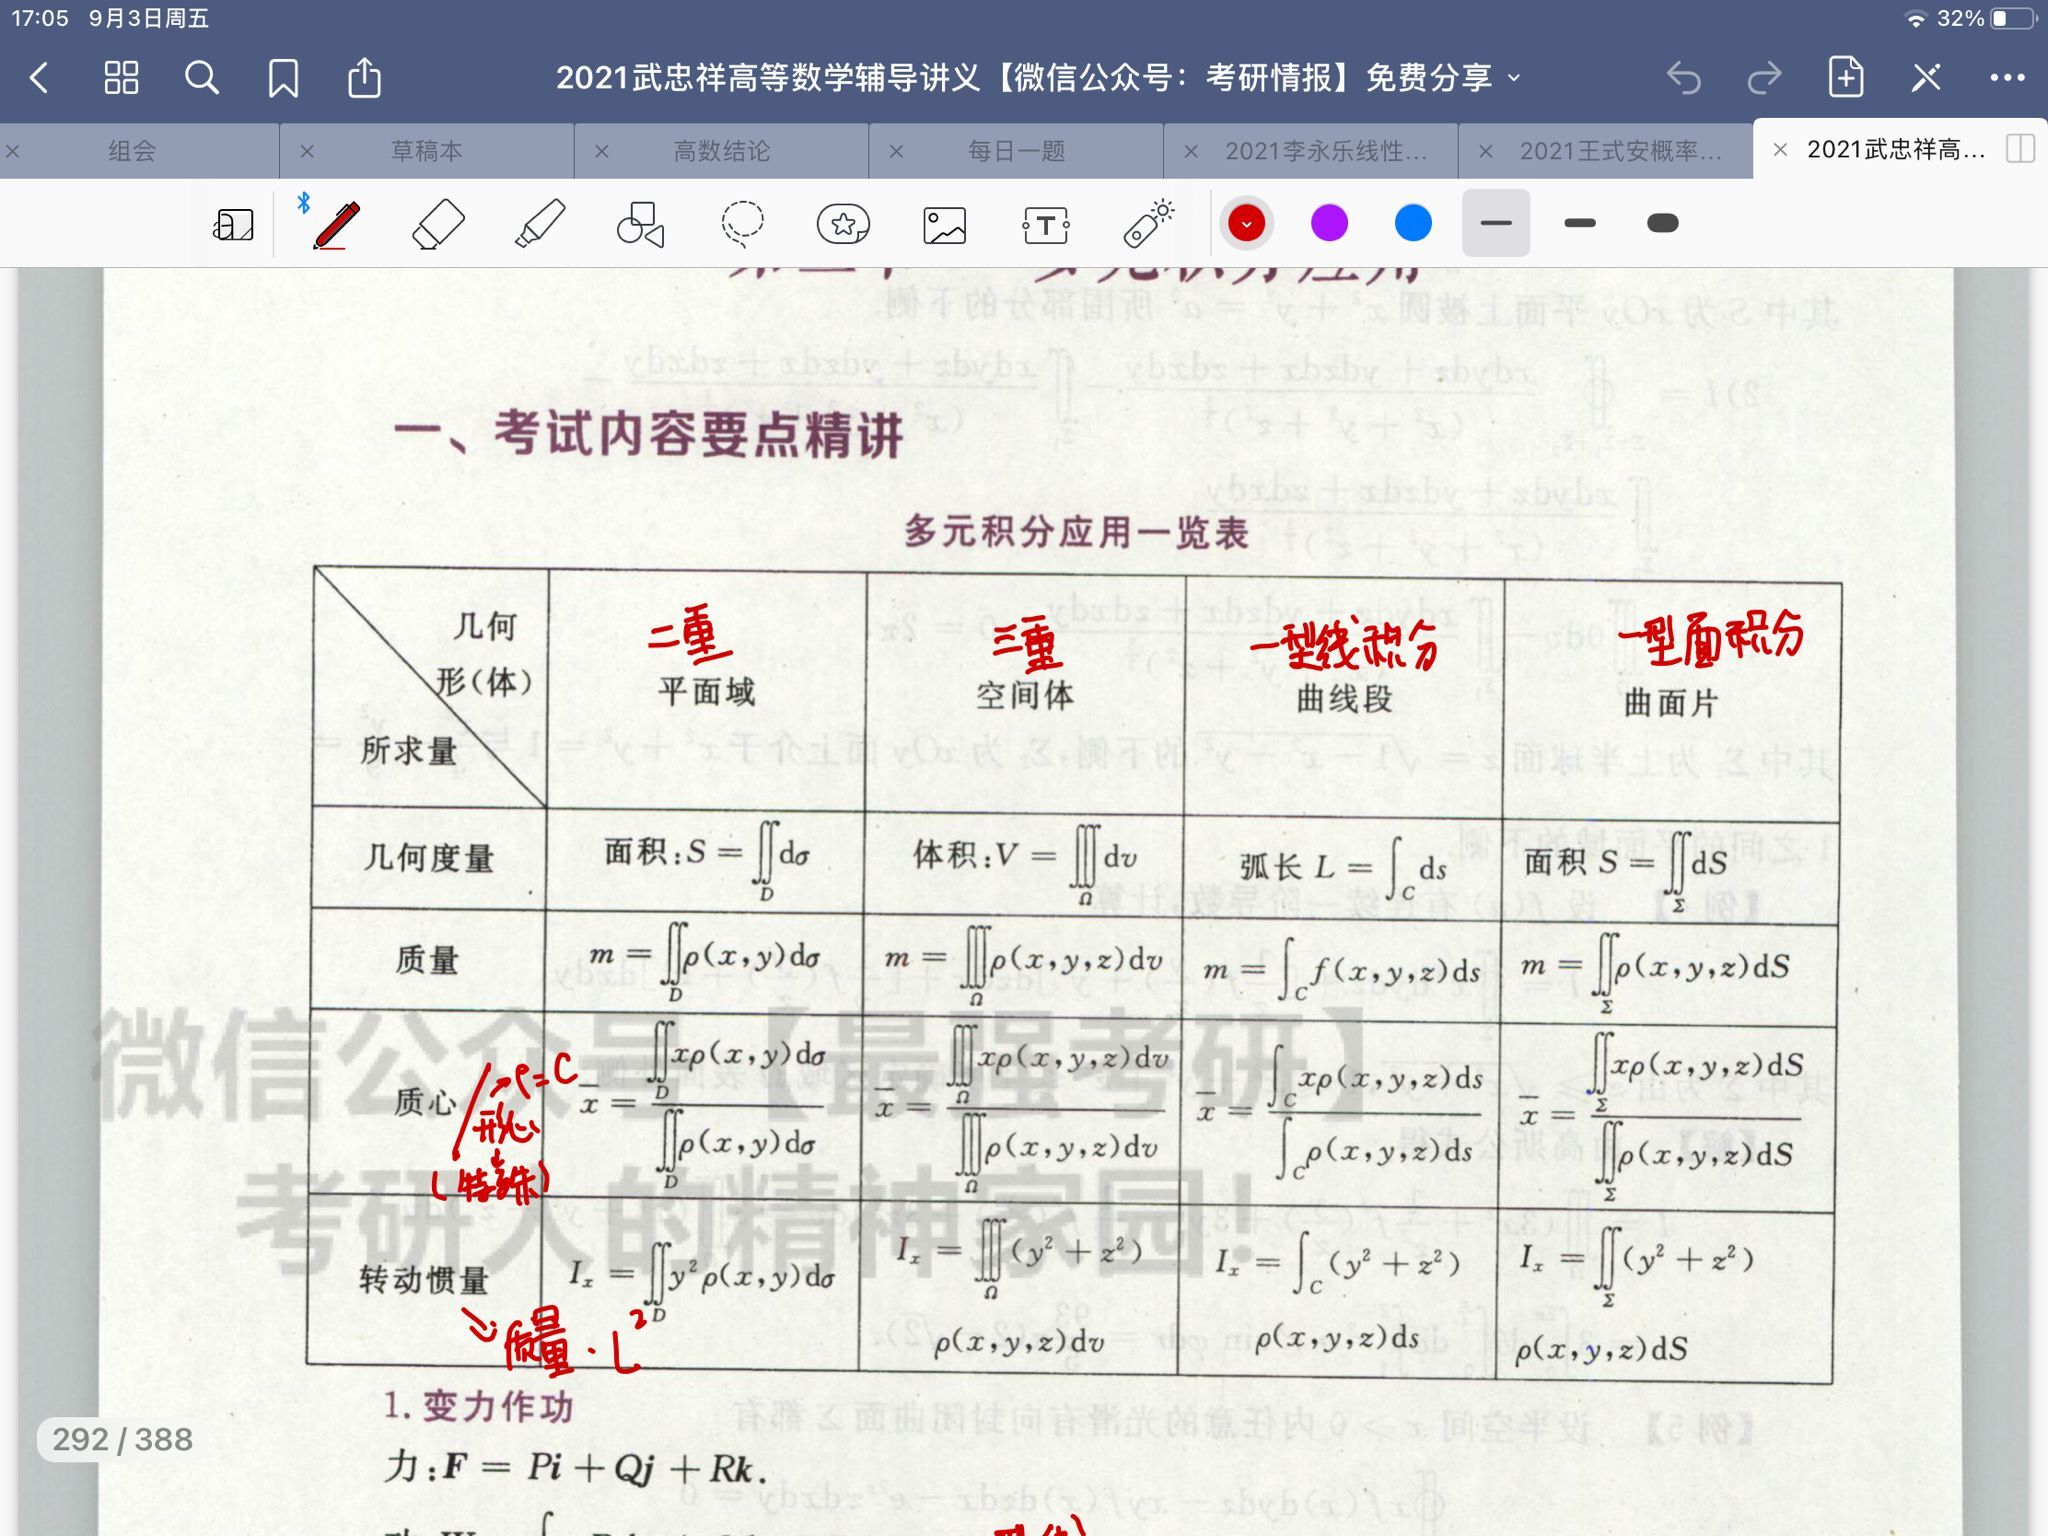 17:05 9月3日周五 32%
2021武忠祥高等数学辅导讲义【微信公众号：考研情报】免费分享
组会 草稿本 高数结论 每日一题 2021李永乐线性... 2021王式安概率... 2021武忠祥高...
一、考试内容要点精讲
多元积分应用一览表
几何
形(体)
所求量
二重
平面域
三重
空间体
一型线积分
曲线段
一型面积分
曲面片
几何度量 面积:S = ∬_D dσ 体积:V = ∭_Ω dv 弧长 L = ∫_C ds 面积 S = ∬_Σ dS
质量 m = ∬_D ρ(x,y)dσ m = ∭_Ω ρ(x,y,z)dv m = ∫_C f(x,y,z)ds m = ∬_Σ ρ(x,y,z)dS
质心 x̄ = ∬_D xρ(x,y)dσ / ∬_D ρ(x,y)dσ x̄ = ∭_Ω xρ(x,y,z)dv / ∭_Ω ρ(x,y,z)dv x̄ = ∫_C xρ(x,y,z)ds / ∫_C ρ(x,y,z)ds x̄ = ∬_Σ xρ(x,y,z)dS / ∬_Σ ρ(x,y,z)dS
ρ=C
形心
(特殊)
转动惯量 I_x = ∬_D y²ρ(x,y)dσ I_x = ∭_Ω (y² + z²) ρ(x,y,z)dv I_x = ∫_C (y² + z²) ρ(x,y,z)ds I_x = ∬_Σ (y² + z²) ρ(x,y,z)dS
质量·L²
微信公众号【最强考研】
考研人的精神家园！
1. 变力作功
力:F = Pi + Qj + Rk.
292 / 388